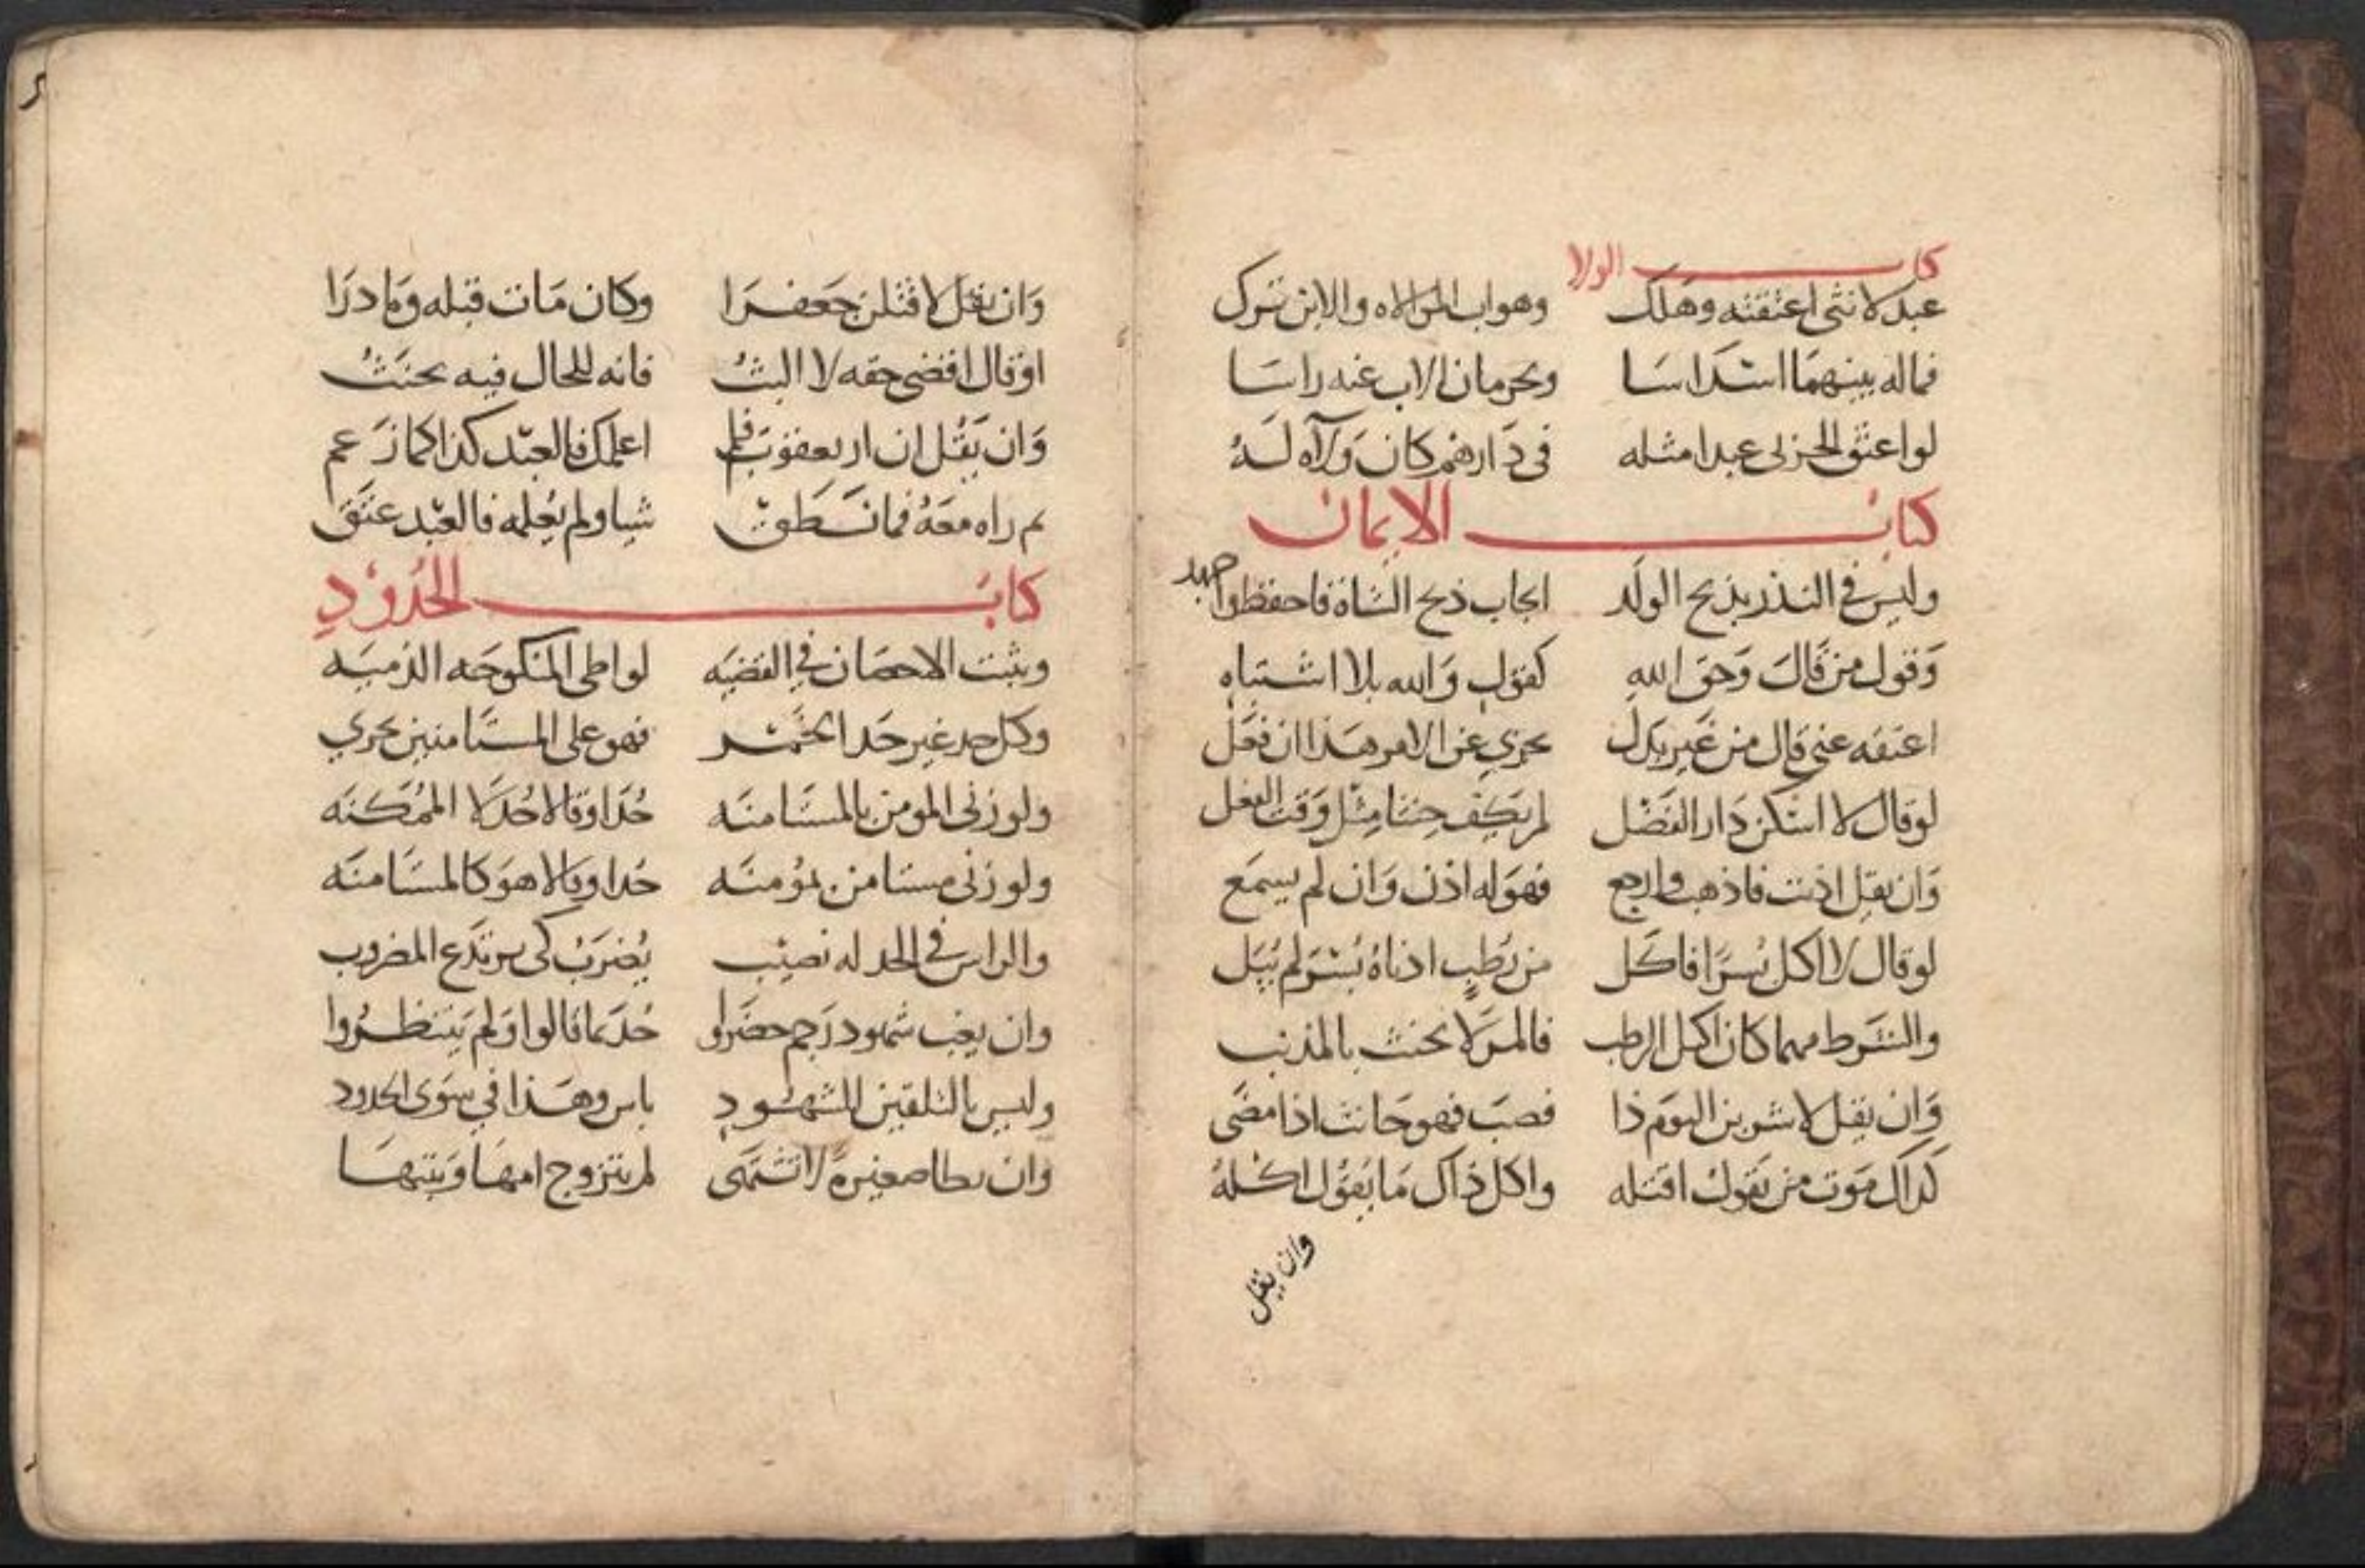 كتاب الولا
عبد لانثى اعتقته وهلك وهو اب والابن ترك
فماله بينهما اسداسا وبحرمان الاب عنه راسا
لو اعتق الحربى عبدا مثله فى دارهم كان ولآه له
كتاب الايمان
وليس فى النذر بذبح الولد ايجاب ذبح الشاة فاحفظوا
وقول من قال وحق الله كقول والله بلا اشتباه
اعتقه عنى قال من غير بدل يجزي عن الامر هذا ان فعل
لو قال لا اسكن دار الفضل لم يكف حنثا مثل وقت الفعل
وان يقل اذنت فاذهب وارجع فهو له اذن وان لم يسمع
لو قال لا اكل بسرا فاكل من رطب ادناه بسر لم يبل
والشرط مهما كان اكل الرطب فالمر لا يحنث بالمذنب
وان يقل لاشربن اليوم ذا فصب فهو حانث اذا مضى
كذاك موت من يقول اقتله واكل ذاك ما يقول اكله
وان يقل
وان يقل لاقتلن جعفرا وكان مات قبله وما درا
او قال اقضى حقه لا البث فانه للحال فيه يحنث
وان يقل ان ار يعقوب فلم اعلمك فالعبد كذا كما زعم
ثم راه معه فما نطق شيا ولم يعلمه فالعبد عتق
كتاب الحدود
ويثبت الاحصان في القضيه لواطى المنكوحه الذميه
وكل حد غير حد الخمر فهو على المستامنين يجري
ولو زنى المومن بالمستامنه حدا وقالا حد لا الممكنه
ولو زنى مستامن بمؤمنه حدا وقالا هو كالمستامنه
والراس في الحد له نصيب يضرب كى يرتدع المضروب
وان يغب شهود رجم حضروا حد كما قالوا ولم ينتظروا
وليس بالتلقين للشهود باس وهذا في سوى الحدود
وان يطا صغيرة لا تشتهى لم يتزوج امها وبنتها